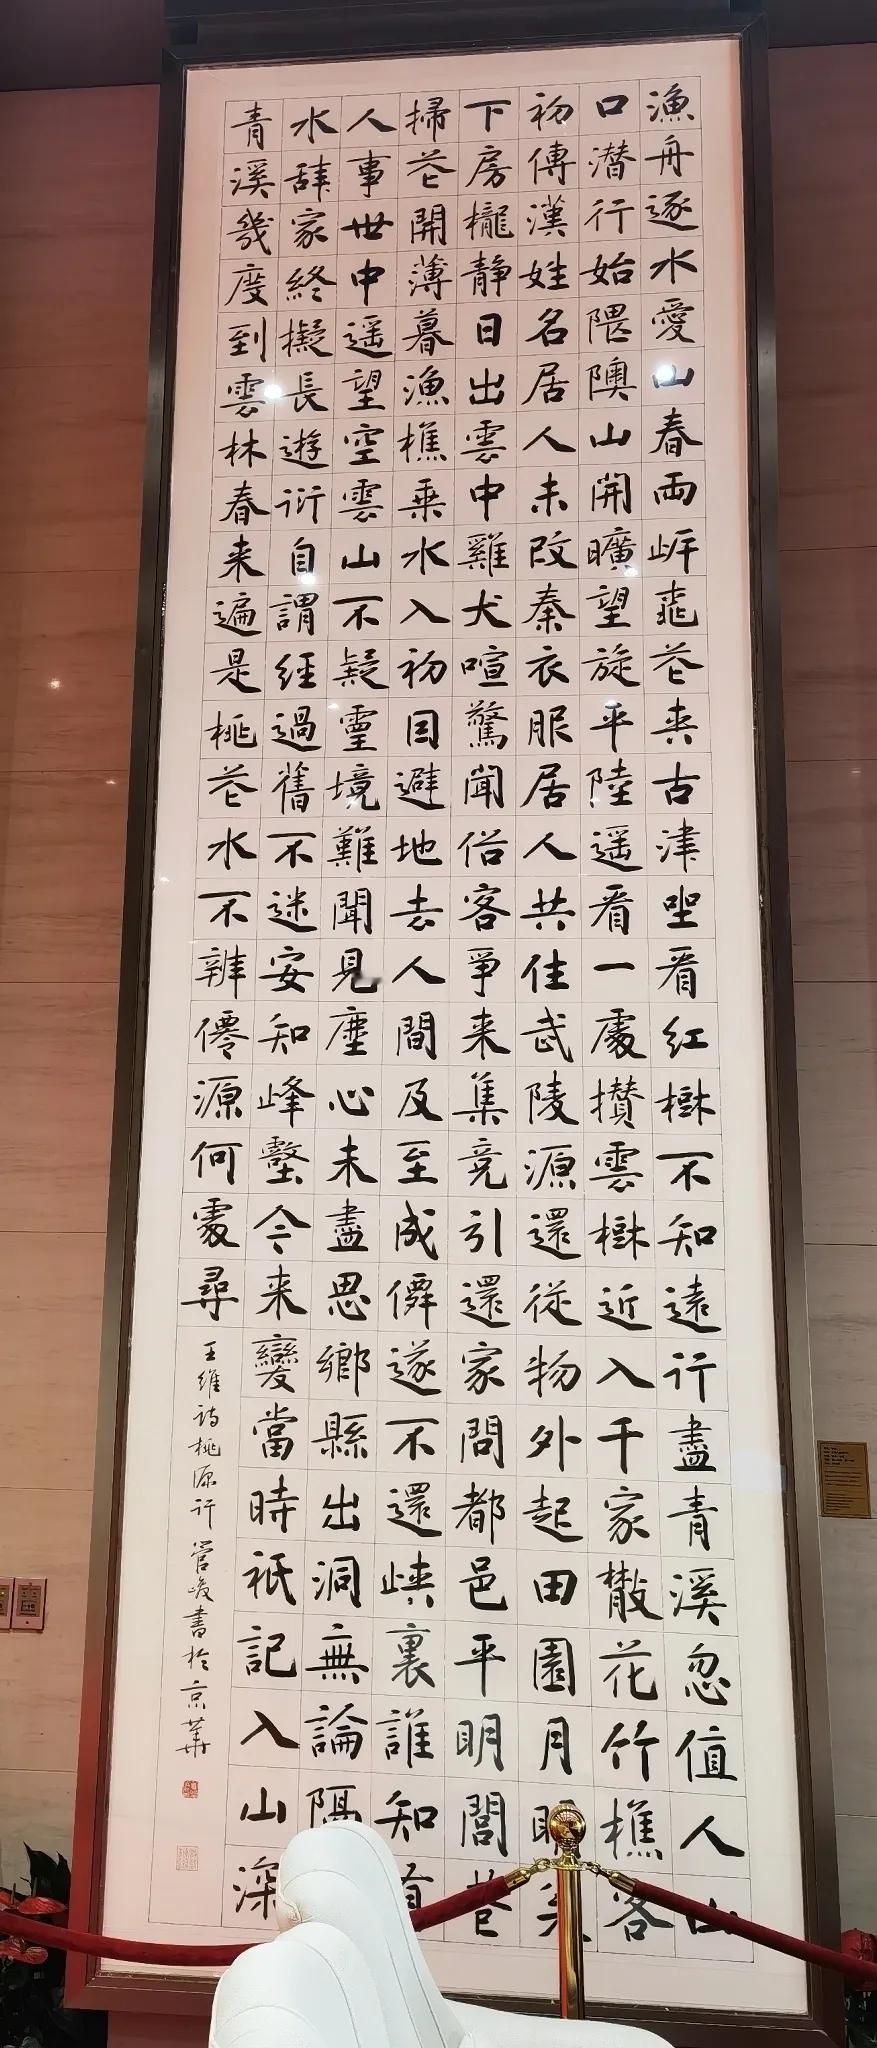 漁舟逐水愛山春兩岸飛花夾古津坐看紅樹不知遠行盡青溪忽值人山
口潛行始隈隩山開曠望旋平陸遥看一處攢雲樹近入千家散花竹樵客
初傳漢姓名居人未改秦衣服居人共住武陵源還從物外起田園月明
下房櫳静日出雲中雞犬喧驚聞俗客爭来集竞引還家問都邑平明閭巷
掃花開薄暮漁樵乘水入初因避地去人間及至成僊遂不還峽裏誰知有
人事世中遥望空雲山不疑靈境難聞見塵心未盡思鄉縣出洞無論隔
水辭家終擬長遊衍自謂經過舊不迷安知峰壑今来變當時衹記入山深
青溪幾度到雲林春来遍是桃花水不辨僊源何處尋
王維詩桃源行 管峻書於京華